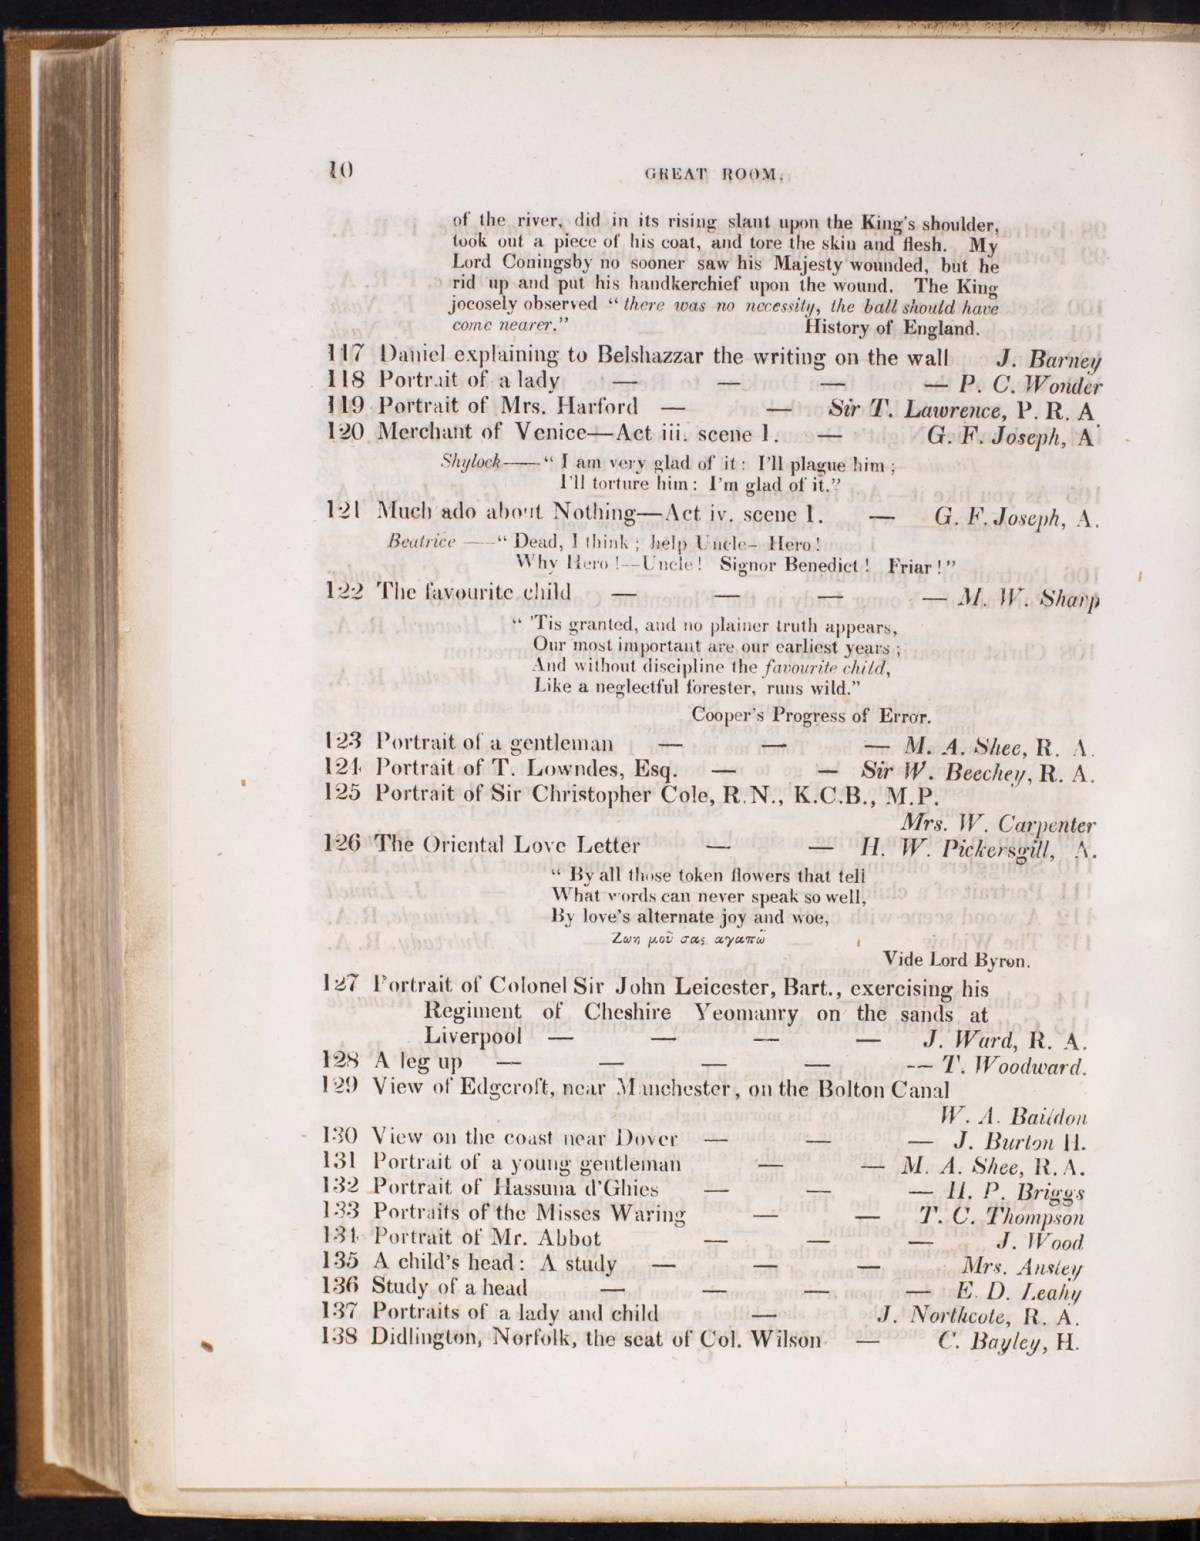 10 GREAT ROOM.
of the river, did in its rising slant upon the King's shoulder,
took out a piece of his coat, and tore the skin and flesh. My
Lord Coningsby no sooner saw his Majesty wounded, but he
rid up and put his handkerchief upon the wound. The King
jocosely observed “there was no necessity, the ball should have
come nearer.” History of England.
117 Daniel explaining to Belshazzar the writing on the wall J. Barney
118 Portrait of a lady — — — — P. C. Wonder
119 Portrait of Mrs. Harford — — Sir T. Lawrence, P. R. A.
120 Merchant of Venice—Act iii. scene 1. — G. F. Joseph, A
Shylock——“ I am very glad of it: I'll plague him;
I'll torture him: I'm glad of it.”
121 Much ado about Nothing—Act iv. scene 1. — G. F. Joseph, A.
Beatrice ——“ Dead, I think; help Uncle- Hero!
Why Hero!--Uncle! Signor Benedict! Friar!”
122 The favourite child — — — — M. W. Sharp
“ 'Tis granted, and no plainer truth appears,
Our most important are our earliest years;
And without discipline the favourite child,
Like a neglectful forester, runs wild.”
Cooper's Progress of Error.
123 Portrait of a gentleman — — — M. A. Shee, R. A.
124 Portrait of T. Lowndes, Esq. — — Sir W. Beechey, R. A.
125 Portrait of Sir Christopher Cole, R.N., K.C.B., M.P.
Mrs. W. Carpenter
126 The Oriental Love Letter — — H. W. Pickersgill, A.
“ By all those token flowers that tell
What words can never speak so well,
By love's alternate joy and woe,
Ζωη μοῦ σας αγαπῶ
Vide Lord Byron.
127 Portrait of Colonel Sir John Leicester, Bart., exercising his
Regiment of Cheshire Yeomanry on the sands at
Liverpool — — — — J. Ward, R. A.
128 A leg up — — — — -- T. Woodward.
129 View of Edgcroft, near Manchester, on the Bolton Canal
W. A. Baildon
130 View on the coast near Dover — — — J. Burton H.
131 Portrait of a young gentleman — — M. A. Shee, R. A.
132 Portrait of Hassuna d'Ghies — — — H. P. Briggs
133 Portraits of the Misses Waring — — T. C. Thompson
134 Portrait of Mr. Abbot — — — J. Wood
135 A child's head: A study — — — Mrs. Ansley
136 Study of a head — — — — E. D. Leahy
137 Portraits of a lady and child — J. Northcote, R. A.
138 Didlington, Norfolk, the seat of Col. Wilson — C. Bayley, H.